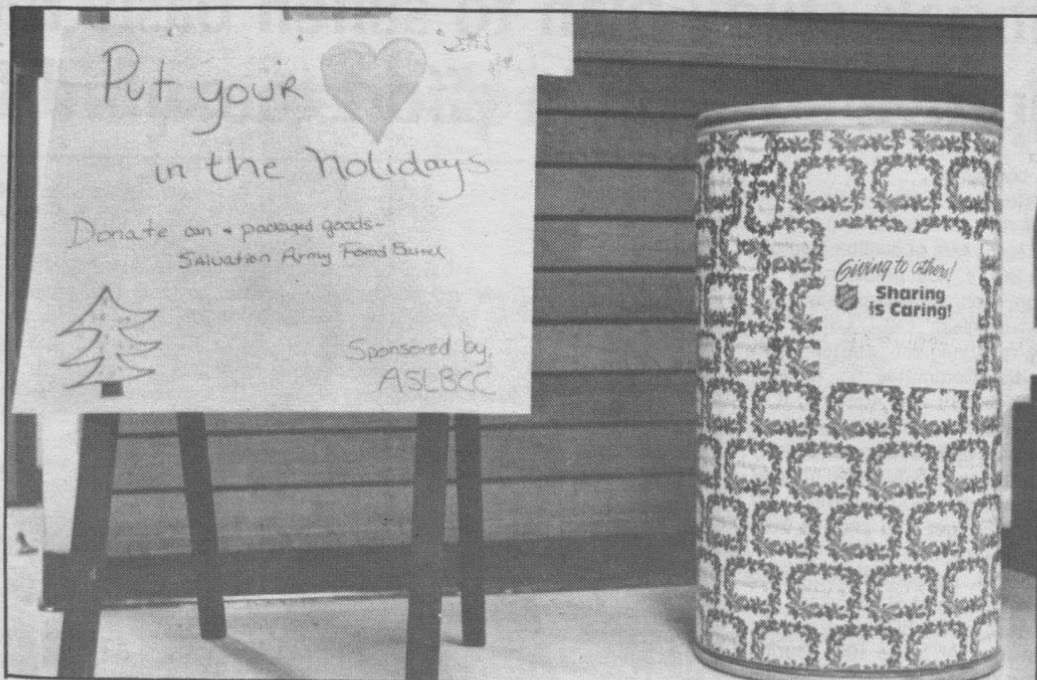 Put your
in the Holidays
Donate can + packaged goods-
Salvation Army Food Barrel
Sponsored by
ASLBCC
Giving to others!
Sharing
is Caring!